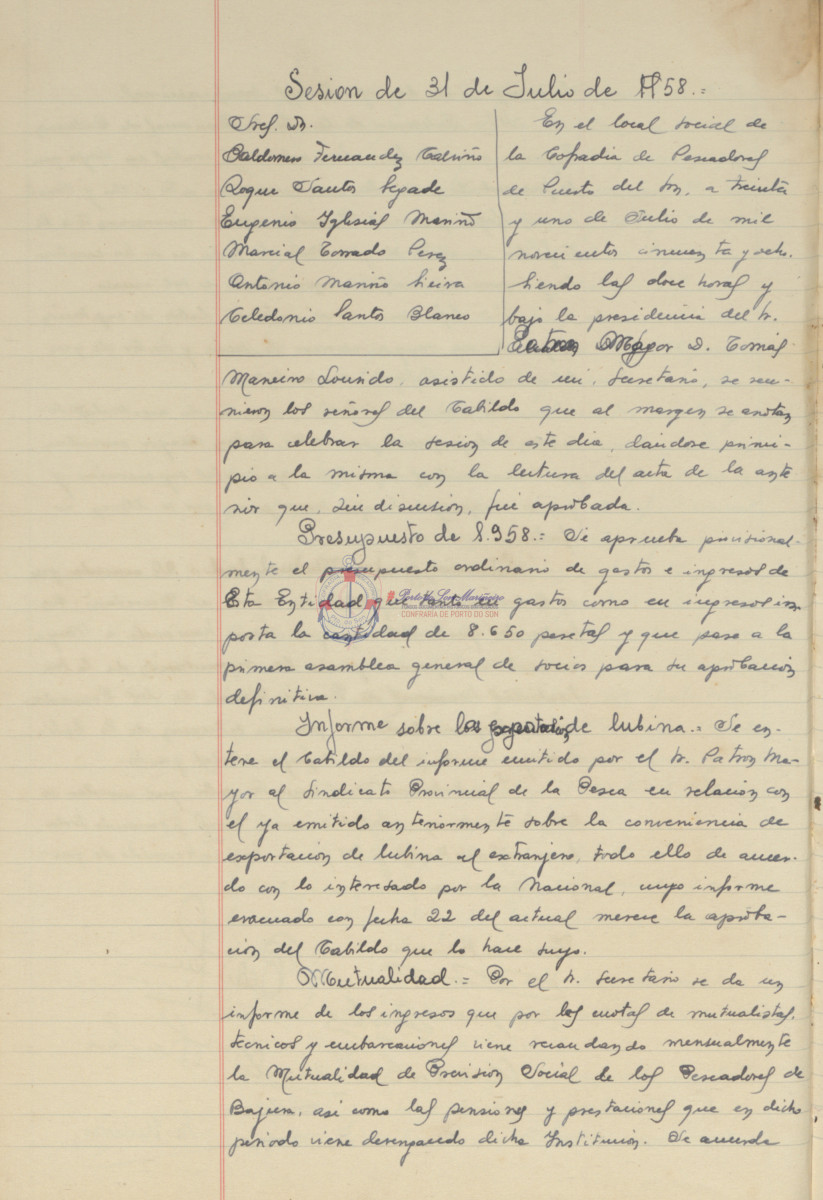 Sesion de 31 de Julio de 1958.=
Sres. Dn.
Baldomero Fernandez Cabriño
Roque Santos Segade
Eugenio Iglesias Mariño
Marcial Torrado Perez
Antonio Mariño Lieira
Celedonio Santos Blanco
En el local social de
la Cofradia de Pescadores
de Puerto del Son, a treinta
y uno de Julio de mil
novecientos cincuenta y ocho.
Siendo las doce horas y
bajo la presidencia del Sr.
Patron Mayor D. Tomás
Maneiro Lourido, asistido de mi, Secretario, se reu-
nieron los señores del Cabildo que al margen se anotan
para celebrar la sesion de este dia, dandose princi-
pio a la misma con la lectura del acta de la ante
rior que, sin discusion, fué aprobada.
Presupuesto de 1.958.= Se aprueba provisional-
mente el presupuesto ordinario de gastos e ingresos de
Esta Entidad que tanto en gastos como en ingresos im
porta la cantidad de 8.650 pesetas y que pase a la
primera asamblea general de socios para su aprobación
definitiva.
Informe sobre la exportación de lubina.= Se en-
tera el Cabildo del informe emitido por el Sr. Patron Ma-
yor al Sindicato Provincial de la Pesca en relacion con
el ya emitido anteriormente sobre la conveniencia de
exportacion de lubina al extranjero, todo ello de acuer-
do con lo interesado por la Nacional, cuyo informe
evacuado con fecha 22 del actual merece la aproba-
cion del Cabildo que lo hace suyo.
Mutualidad.= Por el Sr. Secretario se da un
informe de los ingresos que por las cuotas de mutualistas,
tecnicos y embarcaciones viene recaudando mensualmente
la Mutualidad de Prevision Social de los Pescadores de
Bajura, asi como las pensiones y prestaciones que en dicho
periodo viene devengando dicha Institución. Se acuerda
CONFRARÍA DE PORTO DO SON